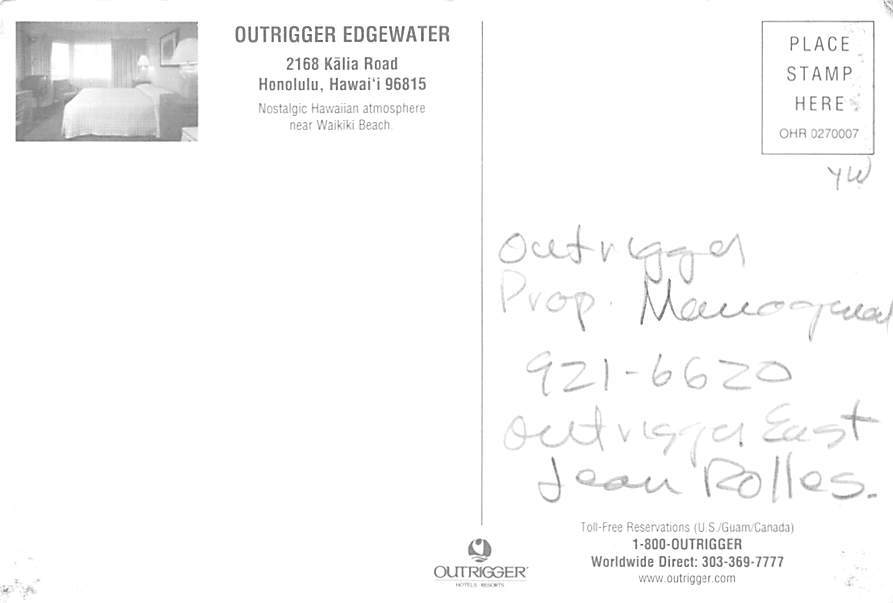 OUTRIGGER EDGEWATER
2168 Kālia Road
Honolulu, Hawai‘i 96815
Nostalgic Hawaiian atmosphere
near Waikiki Beach.
PLACE
STAMP
HERE
OHR 0270007
YW
Outrigger
Prop. Management
921-6620
Outrigger East
Jean Rolles.
OUTRIGGER
HOTELS RESORTS
Toll-Free Reservations (U.S./Guam/Canada)
1-800-OUTRIGGER
Worldwide Direct: 303-369-7777
www.outrigger.com